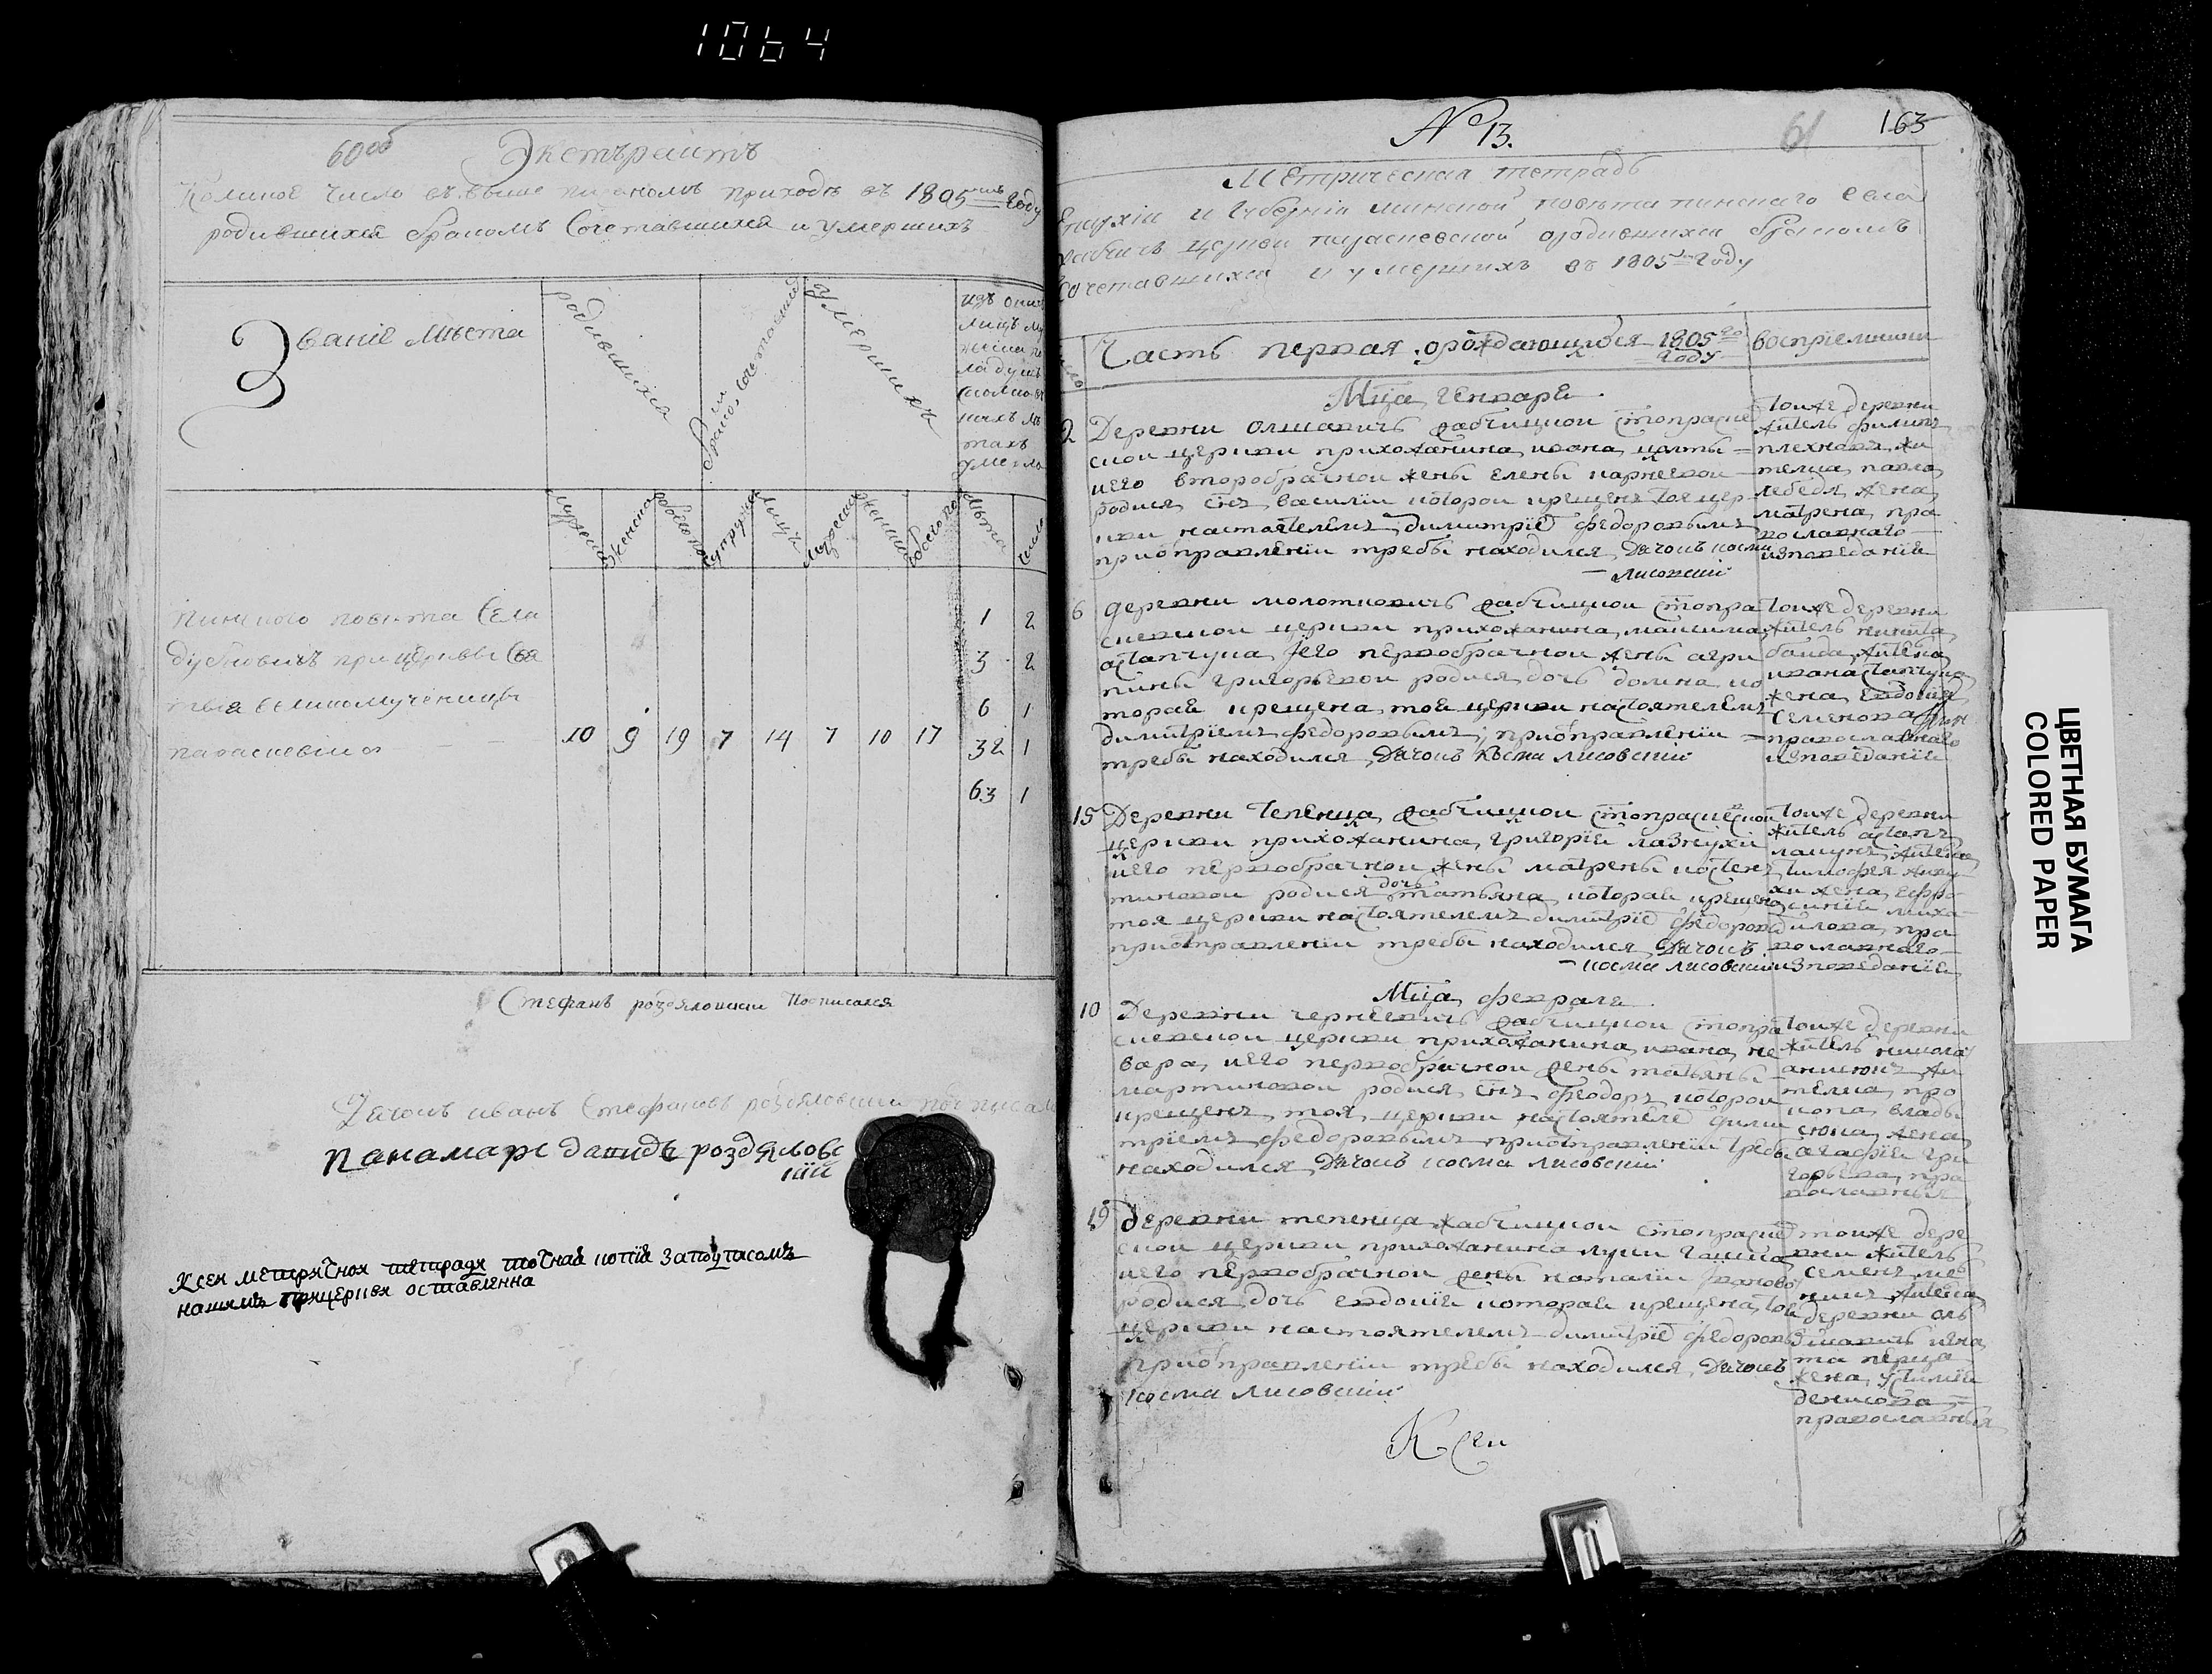 1064
60 об
Экстрактъ
Коликое число въ выше писаномъ приходѣ въ 1805 году
родившихся бракомъ сочетавшихся и умершихъ
Званіе мѣста
родившихся
бракомъ сочетавшихся
умершихъ
изъ оных
лицъ му
умерло
мужеска
женска
обоего по
супруги
лицъ
мужеска
женска
обоего по
лѣта
число
пинского повѣта села
дубновичъ при церквы свя
тыя великомученицы
параскевіи
10 9 19 7 14 7 10 17
1 2
3 2
6 1
32 1
63 1
Стефанъ роздяловски подписался
Дячокъ иванъ Стефановъ роздяловски подписал
панамарь давидъ роздяловс
кій
К сеи метричнои тетради точная копія за подписомъ
нашимъ при церкви оставленна
№ 13.
61
163
Метрическая тетрадь
Епархіи и губерніи минской повѣта пинскаго села
хабчичъ церкви параскевской о родившихся бракомъ
сочетавшихся и умершихъ въ 1805 году
число
Часть первая о рождающихся 1805го году
воспріемники
Мца генваря
2
Деревни олшевичъ хабчицкои стопраске
скои церкви прихожанина ивана
иего второбрачнои жены елены карнеевои
родися снъ василіи которои крещенъ тоя цер
кви настоятелемъ димитріе федоровымъ
приотправленіи требы находился дячокъ косма
лисовскіи
тоиже деревни
житель филипъ
плехновъ жи
телка павла
лебедя жена
матрена пра
вославнаго
исповеданія
6
Деревни молотковичъ хабчицкои стопра
скевскои церкви прихожанина максима
астапчука иего первобрачнои жены агри
пины григорьевои родися дочь домна ко
торая крещена тоя церкви настоятелемъ
димитріемъ федоровымъ приотправленіи
требы находился дячокъ косма лисовскіи
тоиже деревни
житель никита
баида жителка
ивана
жена евдокія
семенова
православнаго
исповеданія
15
Деревни тепенца хабчицкои стопраскеской
церкви прихожанина григорія лазнухи
иего первобрачнои жены матрены костен
тиновои родися дочь татьяна которая крещена
тоя церкви настоятелемъ димитріе федоров
приотправленіи требы находился дячокъ
косма лисовскіи
тоиже деревни
житель астапъ
жителка
тимофея
жена ефро
синія миха
илова пра
вославнаго
изповеданія
Мца февраля
10
Деревни чернеевичъ хабчицкои стопра
скевскои церкви прихожанина ивана не
вара иего первобрачнои жены татьяны
мартиновои родися снъ феодоръ которои
крещенъ тоя церкви настоятеле дими
тріемъ федоровымъ приотправленіи требы
находился дячокъ косма лисовскіи
тоиже деревни
житель никола
жи
телка про
копа влады
сюка жена
агафія гри
горьева пра
вославныя
19
Деревни тепенца хабчицкои стопраске
скои церкви прихожанина луки
иего первобрачнои жены наталіи иваново
родися дочь евдокія которая крещена тоя
церкви настоятелемъ димитріе федоровы
приотправленіи требы находился дячокъ
косма лисовскіи
тоиже дере
вни житель
семенъ
жителка
деревни ол
шевичъ игна
та перца
жена устимія
денисова
православныя
К сеи
ЦВЕТНАЯ БУМАГА
COLORED PAPER